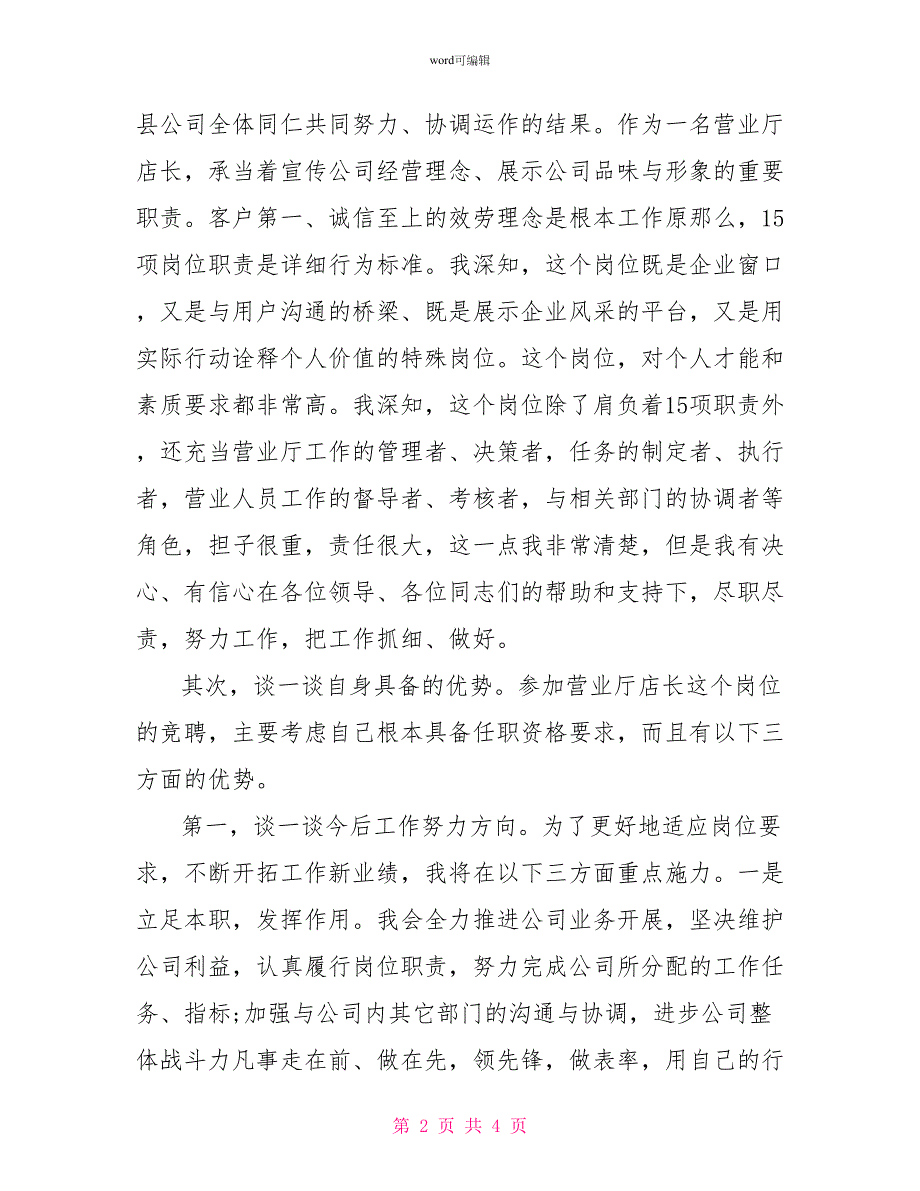 word可编辑
县公司全体同仁共同努力、协调运作的结果。作为一名营业厅
店长，承当着宣传公司经营理念、展示公司品味与形象的重要
职责。客户第一、诚信至上的效劳理念是根本工作原那么，15
项岗位职责是详细行为标准。我深知，这个岗位既是企业窗口
，又是与用户沟通的桥梁、既是展示企业风采的平台，又是用
实际行动诠释个人价值的特殊岗位。这个岗位，对个人才能和
素质要求都非常高。我深知，这个岗位除了肩负着15项职责外
，还充当营业厅工作的管理者、决策者，任务的制定者、执行
者，营业人员工作的督导者、考核者，与相关部门的协调者等
角色，担子很重，责任很大，这一点我非常清楚，但是我有决
心、有信心在各位领导、各位同志们的帮助和支持下，尽职尽
责，努力工作，把工作抓细、做好。
其次，谈一谈自身具备的优势。参加营业厅店长这个岗位
的竞聘，主要考虑自己根本具备任职资格要求，而且有以下三
方面的优势。
第一，谈一谈今后工作努力方向。为了更好地适应岗位要
求，不断开拓工作新业绩，我将在以下三方面重点施力。一是
立足本职，发挥作用。我会全力推进公司业务开展，坚决维护
公司利益，认真履行岗位职责，努力完成公司所分配的工作任
务、指标;加强与公司内其它部门的沟通与协调，进步公司整
体战斗力凡事走在前、做在先，领先锋，做表率，用自己的行
第 2 页 共 4 页